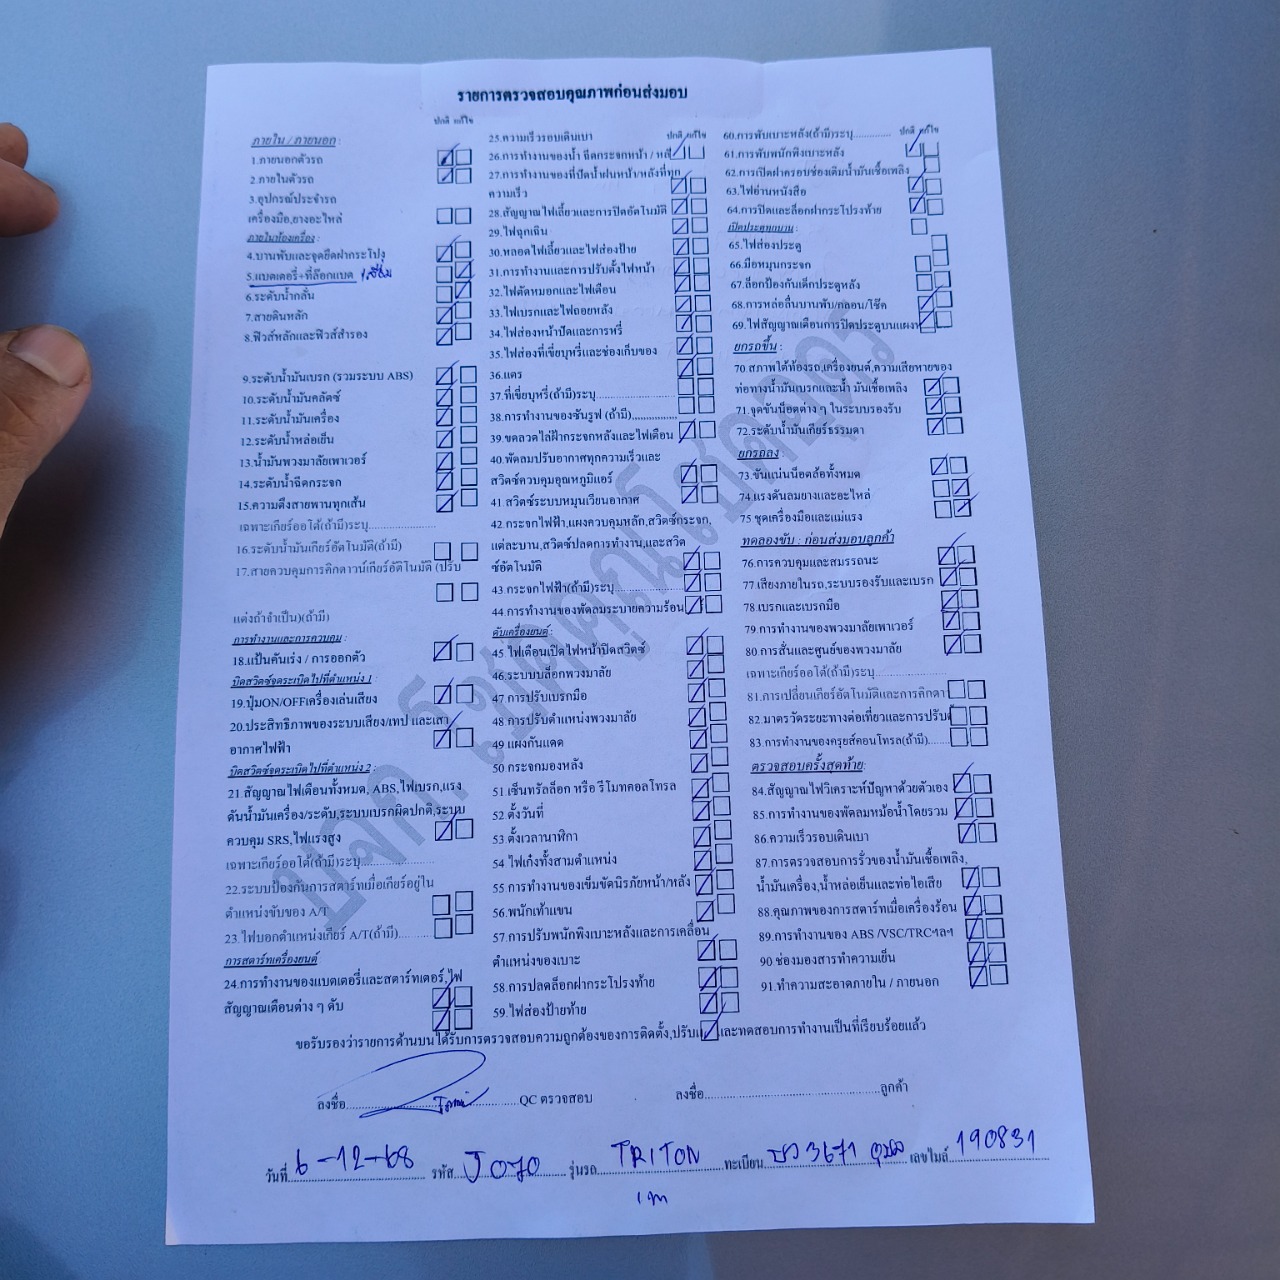 รายการตรวจสอบคุณภาพก่อนส่งมอบ
ปกติ แก้ไข
ภายใน / ภายนอก :
1.ภายนอกตัวรถ
2.ภายในตัวรถ
3.อุปกรณ์ประจำรถ
เครื่องมือ,ยางอะไหล่
ภายในห้องเครื่อง :
4.บานพับและจุดยึดฝากระโปง
5.แบตเตอรี่+ที่ล๊อกแบต
6.ระดับน้ำกลั่น
7.สายดินหลัก
8.ฟิวส์หลักและฟิวส์สำรอง
9.ระดับน้ำมันเบรก (รวมระบบ ABS)
10.ระดับน้ำมันคลัตซ์
11.ระดับน้ำมันเครื่อง
12.ระดับน้ำหล่อเย็น
13.น้ำมันพวงมาลัยเพาเวอร์
14.ระดับน้ำฉีดกระจก
15.ความตึงสายพานทุกเส้น
เฉพาะเกียร์ออโต้(ถ้ามี)ระบุ......................
16.ระดับน้ำมันเกียร์อัตโนมัติ(ถ้ามี)
17.สายควบคุมการคิกดาวน์เกียร์อัติโนมัติ (ปรับ
แต่งถ้าจำเป็น)(ถ้ามี)
การทำงานและการควบคุม :
18.แป้นคันเร่ง / การออกตัว
บิดสวิตซ์จุดระเบิดไปที่ตำแหน่ง 1 :
19.ปุ่มON/OFFเครื่องเล่นเสียง
20.ประสิทธิภาพของระบบเสียง/เทป และเสา
อากาศไฟฟ้า
บิดสวิตซ์จุดระเบิดไปที่ตำแหน่ง 2 :
21 สัญญาณไฟเตือนทั้งหมด, ABS,ไฟเบรก,แรง
ดันน้ำมันเครื่อง/ระดับ,ระบบเบรกผิดปกติ,ระบบ
ควบคุม SRS,ไฟแรงสูง
เฉพาะเกียร์ออโต้(ถ้ามี)ระบุ......................
22.ระบบป้องกันการสตาร์ทเมื่อเกียร์อยู่ใน
ตำแหน่งขับของ A/T
23.ไฟบอกตำแหน่งเกียร์ A/T(ถ้ามี)..........
การสตาร์ทเครื่องยนต์
24.การทำงานของแบตเตอรี่และสตาร์ทเตอร์,ไฟ
สัญญาณเตือนต่าง ๆ ดับ
25.ความเร็วรอบเดินเบา
ปกติ แก้ไข
26.การทำงานของน้ำ ฉีดกระจกหน้า / หลัง
27.การทำงานของที่ปัดน้ำฝนหน้า/หลังที่ทุก
ความเร็ว
28.สัญญาณไฟเลี้ยวและการปิดอัตโนมัติ
29.ไฟฉุกเฉิน
30.หลอดไฟเลี้ยวและไฟส่องป้าย
31.การทำงานและการปรับตั้งไฟหน้า
32.ไฟตัดหมอกและไฟเตือน
33.ไฟเบรกและไฟถอยหลัง
34.ไฟส่องหน้าปัดและการหรี่
35.ไฟส่องที่เขี่ยบุหรี่และช่องเก็บของ
36.แตร
37.ที่เขี่ยบุหรี่(ถ้ามี)ระบุ......................
38.การทำงานของซันรูฟ (ถ้ามี)................
39.ขดลวดไล่ฝ้ากระจกหลังและไฟเตือน
40.พัดลมปรับอากาศทุกความเร็วและ
สวิตซ์ควบคุมอุณหภูมิแอร์
41.สวิตซ์ระบบหมุนเวียนอากาศ
42.กระจกไฟฟ้า,แผงควบคุมหลัก,สวิตซ์กระจก,
แต่ละบาน,สวิตซ์ปลดการทำงาน,และสวิต
ซ์อัตโนมัติ
43 กระจกไฟฟ้า(ถ้ามี)ระบุ......................
44 การทำงานของพัดลมระบายความร้อน
ดับเครื่องยนต์ :
45 ไฟเตือนเปิดไฟหน้าปิดสวิตซ์
46.ระบบบล็อกพวงมาลัย
47 การปรับเบรกมือ
48 การปรับตำแหน่งพวงมาลัย
49 แผงกันแดด
50 กระจกมองหลัง
51 เซ็นทรัลล็อก หรือ รีโมทคอลโทรล
52 ตั้งวันที่
53 ตั้งเวลานาฬิกา
54 ไฟเก๋งทั้งสามตำแหน่ง
55 การทำงานของเข็มขัดนิรภัยหน้า/หลัง
56.พนักเท้าแขน
57.การปรับพนักพิงเบาะหลังและการเคลื่อน
ตำแหน่งของเบาะ
58 การปลดล็อกฝากระโปรงท้าย
59.ไฟส่องป้ายท้าย
60.การพับเบาะหลัง(ถ้ามี)ระบุ.............
ปกติ แก้ไข
61.การพับพนักพิงเบาะหลัง
62.การเปิดฝาครอบช่องเติมน้ำมันเชื้อเพลิง
63.ไฟอ่านหนังสือ
64.การปิดและล็อกฝากระโปรงท้าย
เปิดประตูทุกบาน :
65.ไฟส่องประตู
66.มือหมุนกระจก
67.ล็อกป้องกันเด็กประตูหลัง
68.การหล่อลื่นบานพับ/กลอน/โช๊ค
69.ไฟสัญญาณเตือนการปิดประตูบนแผงห
ยกรถขึ้น :
70 สภาพใต้ท้องรถ,เครื่องยนต์,ความเสียหายของ
ท่อทางน้ำมันเบรกและน้ำ มันเชื้อเพลิง
71.จุดขันน็อตต่าง ๆ ในระบบรองรับ
72.ระดับน้ำมันเกียร์ธรรมดา
ยกรถลง :
73.ขันแน่นน็อตล้อทั้งหมด
74.แรงดันลมยางและอะไหล่
75 ชุดเครื่องมือและแม่แรง
ทดลองขับ : ก่อนส่งมอบลูกค้า
76.การควบคุมและสมรรถนะ
77.เสียงภายในรถ,ระบบรองรับและเบรก
78 เบรกและเบรกมือ
79.การทำงานของพวงมาลัยเพาเวอร์
80 การสั่นและศูนย์ของพวงมาลัย
เฉพาะเกียร์ออโต้(ถ้ามี)ระบุ..............
81.การเปลี่ยนเกียร์อัตโนมัติและการคิกดา
82.มาตรวัดระยะทางต่อเที่ยวและการปรับ
83.การทำงานของครุยส์คอนโทรล(ถ้ามี)......
ตรวจสอบครั้งสุดท้าย:
84.สัญญาณไฟวิเคราะห์ปัญหาด้วยตัวเอง
85.การทำงานของพัดลมหม้อน้ำโดยรวม
86.ความเร็วรอบเดินเบา
87.การตรวจสอบการรั่วของน้ำมันเชื้อเพลิง,
น้ำมันเครื่อง,น้ำหล่อเย็นและท่อไอเสีย
88.คุณภาพของการสตาร์ทเมื่อเครื่องร้อน
89.การทำงานของ ABS /VSC/TRCฯลฯ
90 ช่องมองสารทำความเย็น
91.ทำความสะอาดภายใน / ภายนอก
ขอรับรองว่ารายการด้านบนได้รับการตรวจสอบความถูกต้องของการติดตั้ง,ปรับแ และทดสอบการทำงานเป็นที่เรียบร้อยแล้ว
ลงชื่อ......................QC ตรวจสอบ
ลงชื่อ......................ลูกค้า
วันที่ 6-12-68 รหัส J070 รุ่นรถ TRITON ทะเบียน 3671 เลขไมล์ 190831